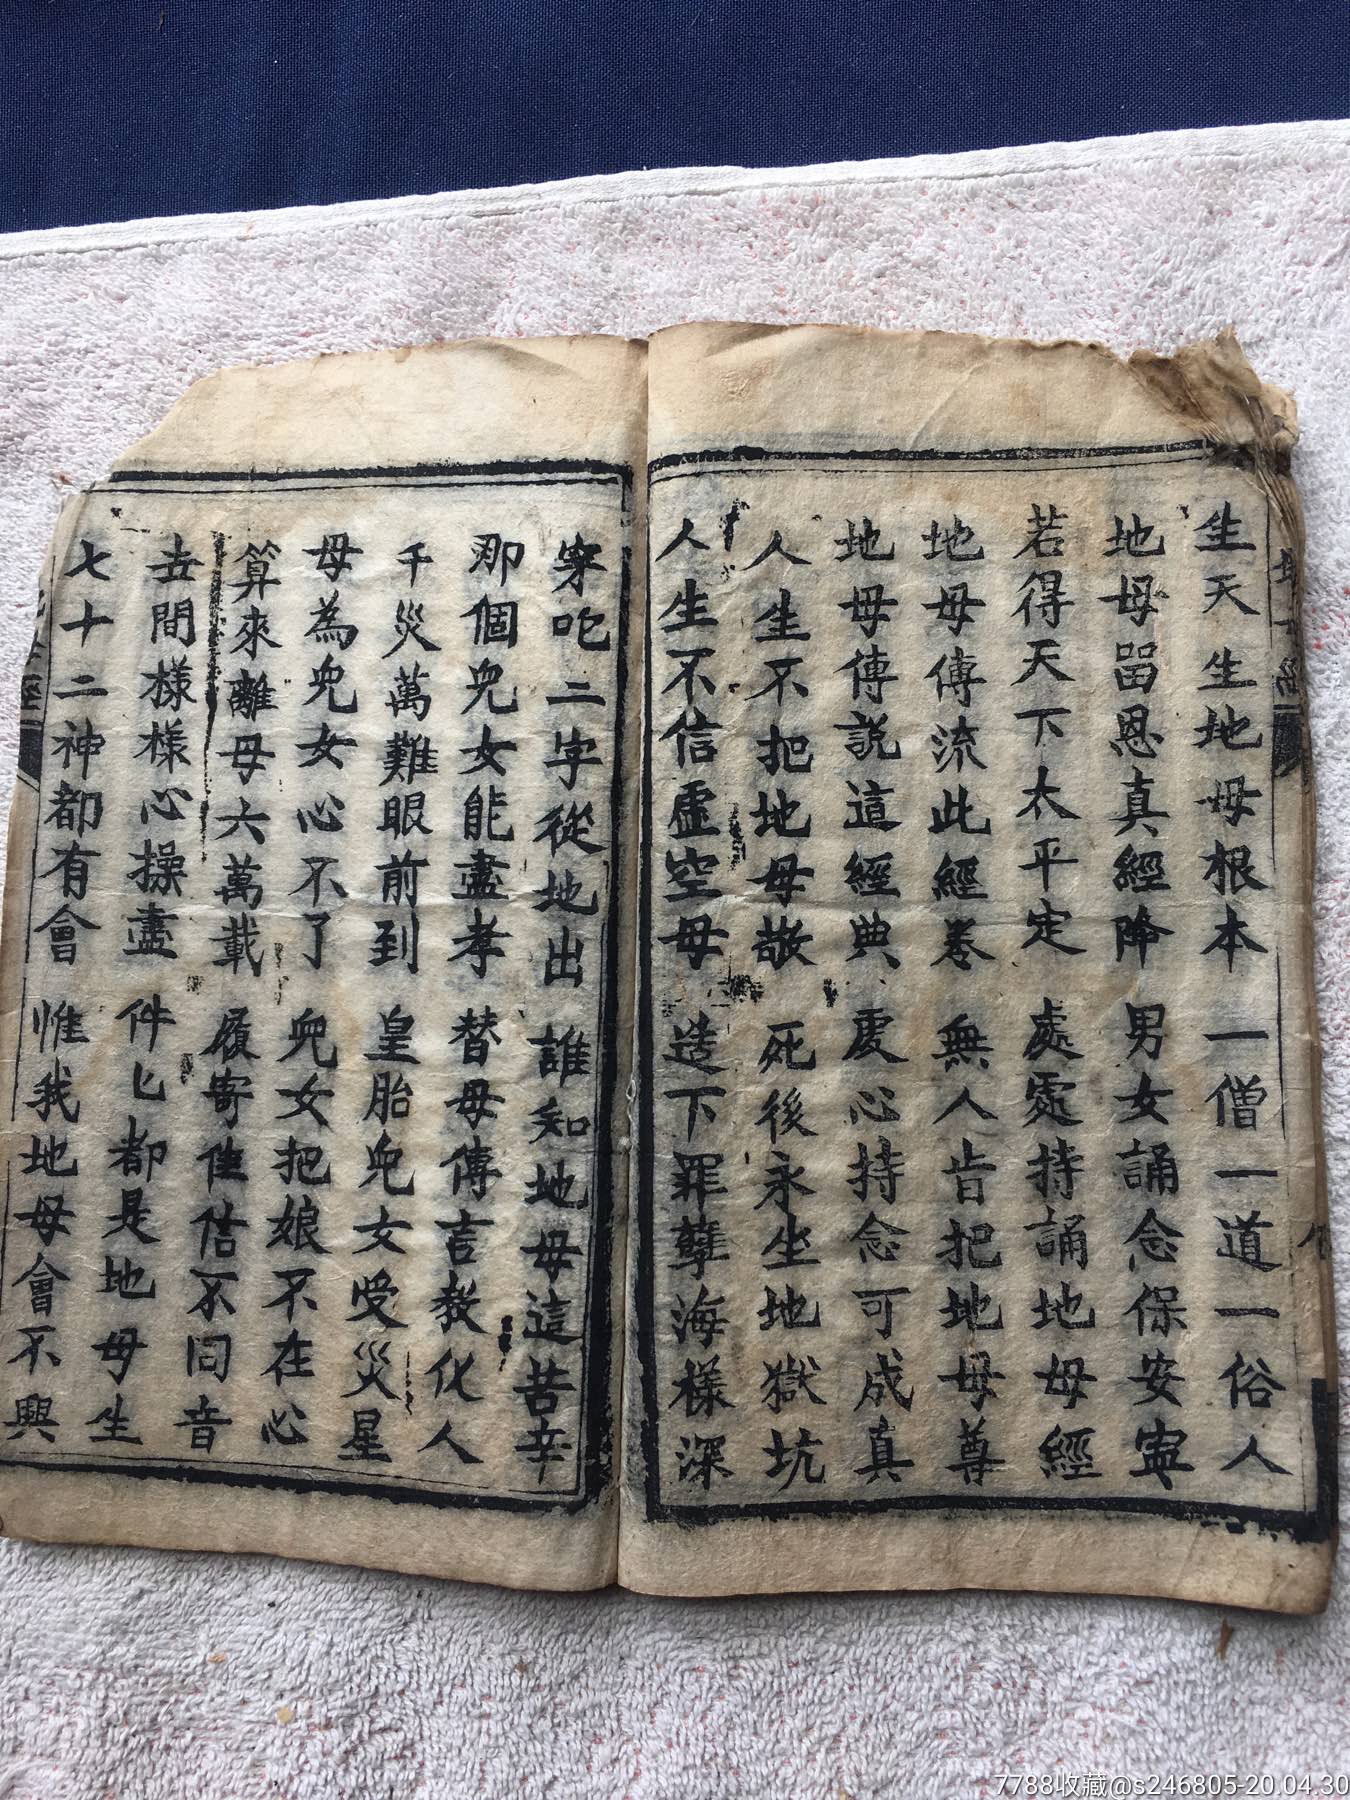 生天生地母根本　一僧一道一俗人
地母留恩真經降　男女誦念保安寧
若得天下太平定　處處持誦地母經
地母傳流此經卷　無人肯把地母尊
地母傳說這經典　虔心持念可成真
人生不把地母敬　死後永坐地獄坑
人生不信虛空母　造下罪孽海樣深
穿吃二字從地出　誰知地母這苦辛
那個兒女能盡孝　替母傳言教化人
千災萬難眼前到　皇胎兒女受災星
母為兒女心不了　兒女把娘不在心
算來離母六萬載　履寄佳信不回音
世間樣樣心操盡　件匕都是地母生
七十二神都有會　惟我地母會不興
7788收藏@s246805-20.04.30